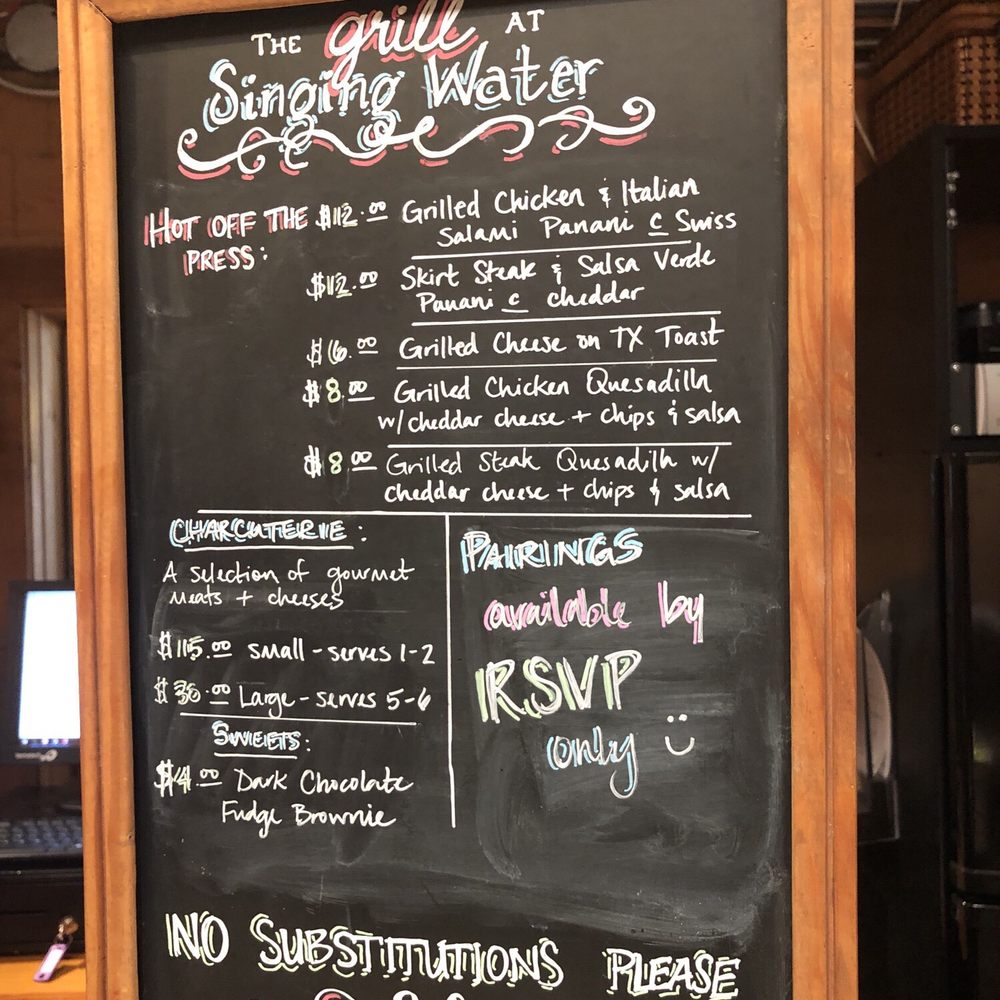 THE grill AT
Singing Water
HOT OFF THE
PRESS:
$12.00 Grilled Chicken & Italian
Salami Panani c Swiss
$12.00 Skirt Steak & Salsa Verde
Panani c cheddar
$6.00 Grilled Cheese on TX Toast
$8.00 Grilled Chicken Quesadilla
w/cheddar cheese + chips & salsa
$8.00 Grilled Steak Quesadilla w/
cheddar cheese + chips & salsa
CHARCUTERIE:
A selection of gourmet
meats + cheeses
$15.00 small - serves 1-2
Large - serves 5-6
SWEETS:
$4.00 Dark Chocolate
Fudge Brownie
PAIRINGS
available by
RSVP
only
NO SUBSTITUTIONS PLEASE